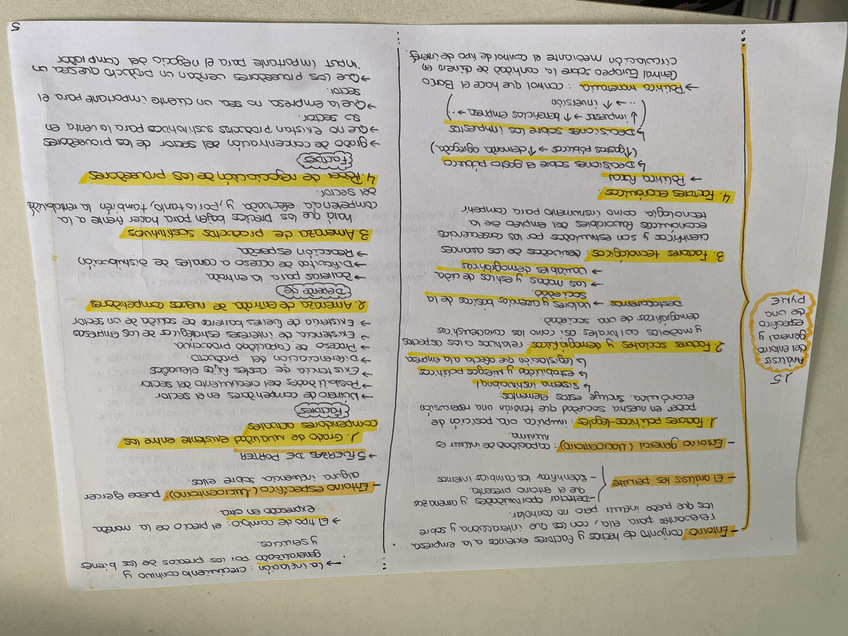 1.5
Análisis
del entorno
general y
específico
de una
PYME
- Entorno: conjunto de hechos y factores externos a la empresa
relevantes para ella, con los que interacciona y sobre
los que puede influir pero no controlar.
- El análisis les permite
- Detectar oportunidades y amenazas
que el entorno presenta
- Identificar los cambios internos
- Entorno general (Macroentorno): capacidad de influir es
mínima
1. Factores político-legales: implica otra posición de
poder en nuestra sociedad que tendrá una repercusión
económica. Incluye estos elementos:
↳ sistema institucional
↳ estabilidad y riesgos políticos
↳ legislación que afecta a la empresa
2. Factores sociales y demográficos: relativos a los aspectos
y modelos culturales así como las características
demográficas de una sociedad
→ Valores y creencias básicos de la
sociedad
→ Las modas y estilos de vida
→ Variables demográficas
3. Factores tecnológicos: derivados de los avances
científicos y son estimulados por las consecuencias
económicas favorables del empleo de la
tecnología como instrumento para competir
4. Factores económicos:
→ Política fiscal
↳ Decisiones sobre el gasto público
(↑gastos públicos → ↑ demanda agregada)
↳ Decisiones sobre los impuestos
↓ impuestos → ↑ beneficios empresa →...
... → ↑ inversión
→ Política monetaria: control que hace el Banco
Central Europeo sobre la cantidad de dinero en
circulación mediante el control de tipo de interés
→ La inflación: crecimiento continuo y
generalizado de los precios de los bienes
y servicios.
→ El tipo de cambio: el precio de la moneda
expresada en otra
- Entorno específico (Microentorno): puede ejercer
alguna influencia sobre ellos.
→ 5 FUERZAS DE PORTER
1. Grado de rivalidad existente entre los
competidores actuales
Factores
→ Número de competidores en el sector
→ Posibilidades del crecimiento del sector
→ Existencia de costes fijos elevados
→ Diferenciación del producto
→ Exceso de capacidad productiva
→ Existencia de intereses estratégicos de las empresas
→ Existencia de fuertes barreras de salida de un sector
2. Amenaza de entrada de nuevos competidores
Depende de
→ Barreras para la entrada
→ Dificultad de acceso a canales de distribución
→ Reacción esperada
3. Amenaza de productos sustitutivos
hará que los precios bajen para hacer frente a la
competencia afectada y, por lo tanto, también la rentabilidad
del sector.
4. Poder de negociación de los proveedores
Factores
→ grado de concentración del sector de los proveedores
→ que no existan productos sustitutivos para la venta en
su sector.
→ que la empresa no sea un cliente importante para el
sector.
→ Que los proveedores vendan un producto que sea un
input importante para el negocio del comprador
5